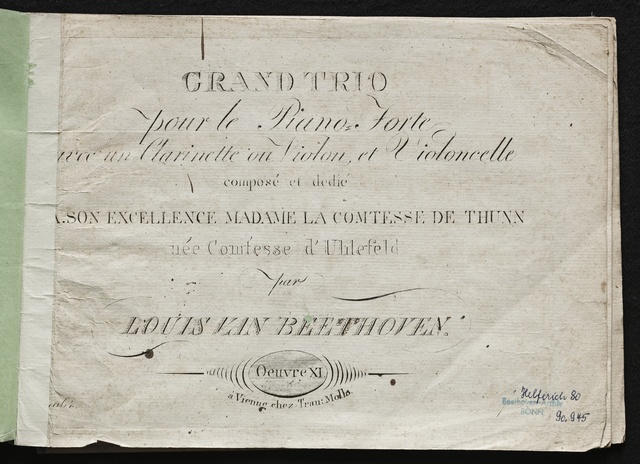 GRAND TRIO
pour le Piano-Forte
avec un Clarinette ou Violon, et Violoncelle
composé et dedié
A SON EXCELLENCE MADAME LA COMTESSE DE THUNN
née Comtesse d'Uhlefeld
par
LOUIS VAN BEETHOVEN.
Oeuvre XI.
à Vienne chez Tranq: Mollo.
Helferich 80
BONN